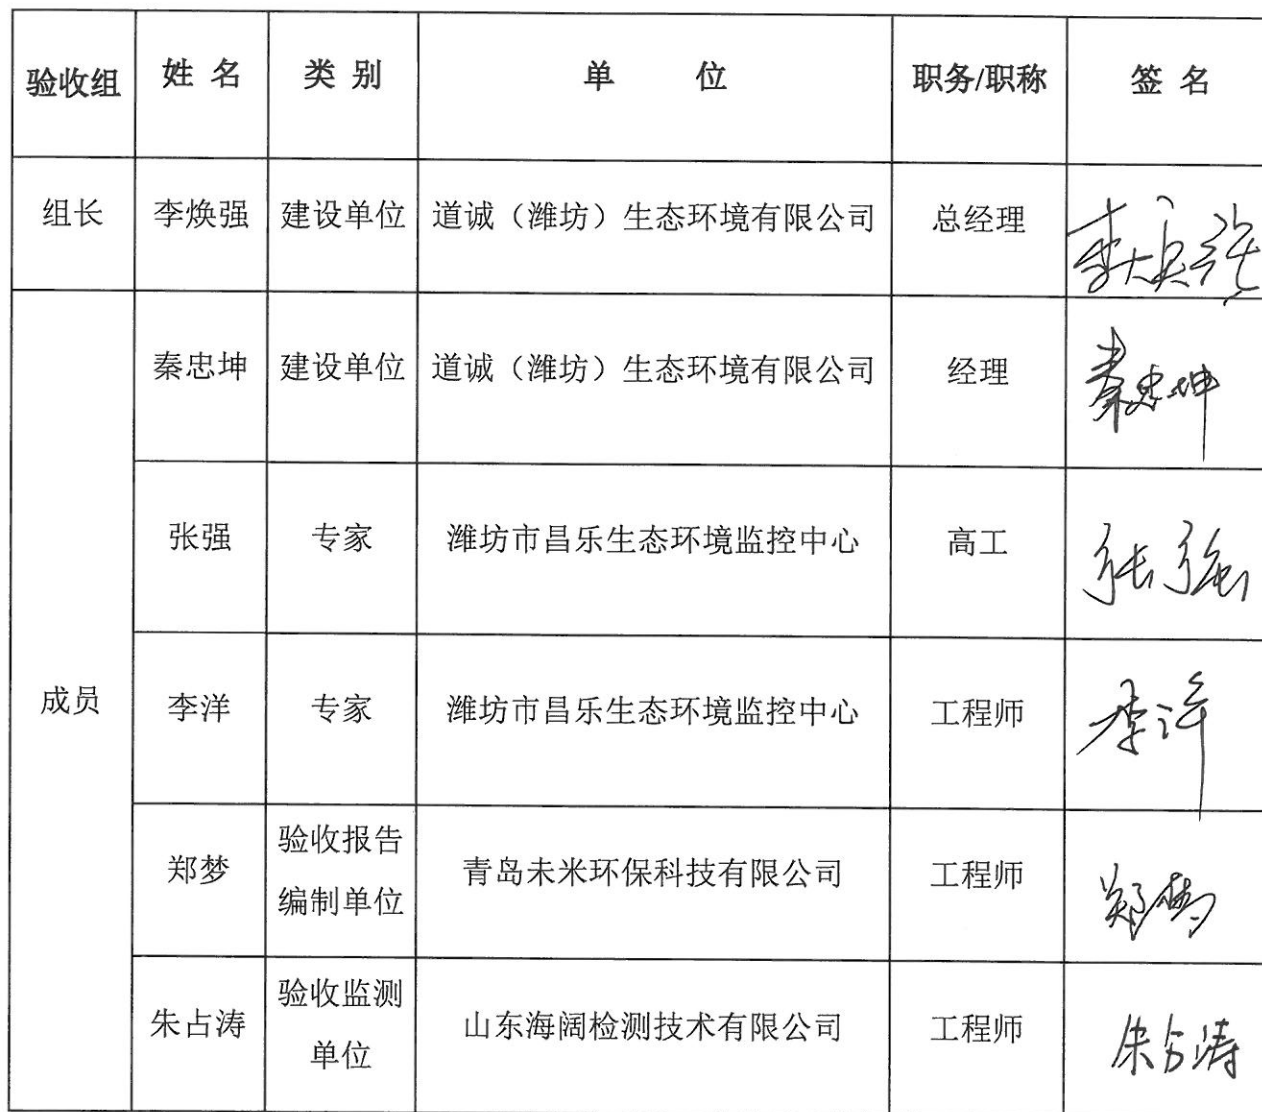 验收组 姓 名 类 别 单 位 职务/职称 签 名
组长 李焕强 建设单位 道诚（潍坊）生态环境有限公司 总经理 李焕强
秦忠坤 建设单位 道诚（潍坊）生态环境有限公司 经理 秦忠坤
张强 专家 潍坊市昌乐生态环境监控中心 高工 张强
成员 李洋 专家 潍坊市昌乐生态环境监控中心 工程师 李洋
郑梦 验收报告 青岛未米环保科技有限公司 工程师 郑梦
编制单位
朱占涛 验收监测 山东海阔检测技术有限公司 工程师 朱占涛
单位